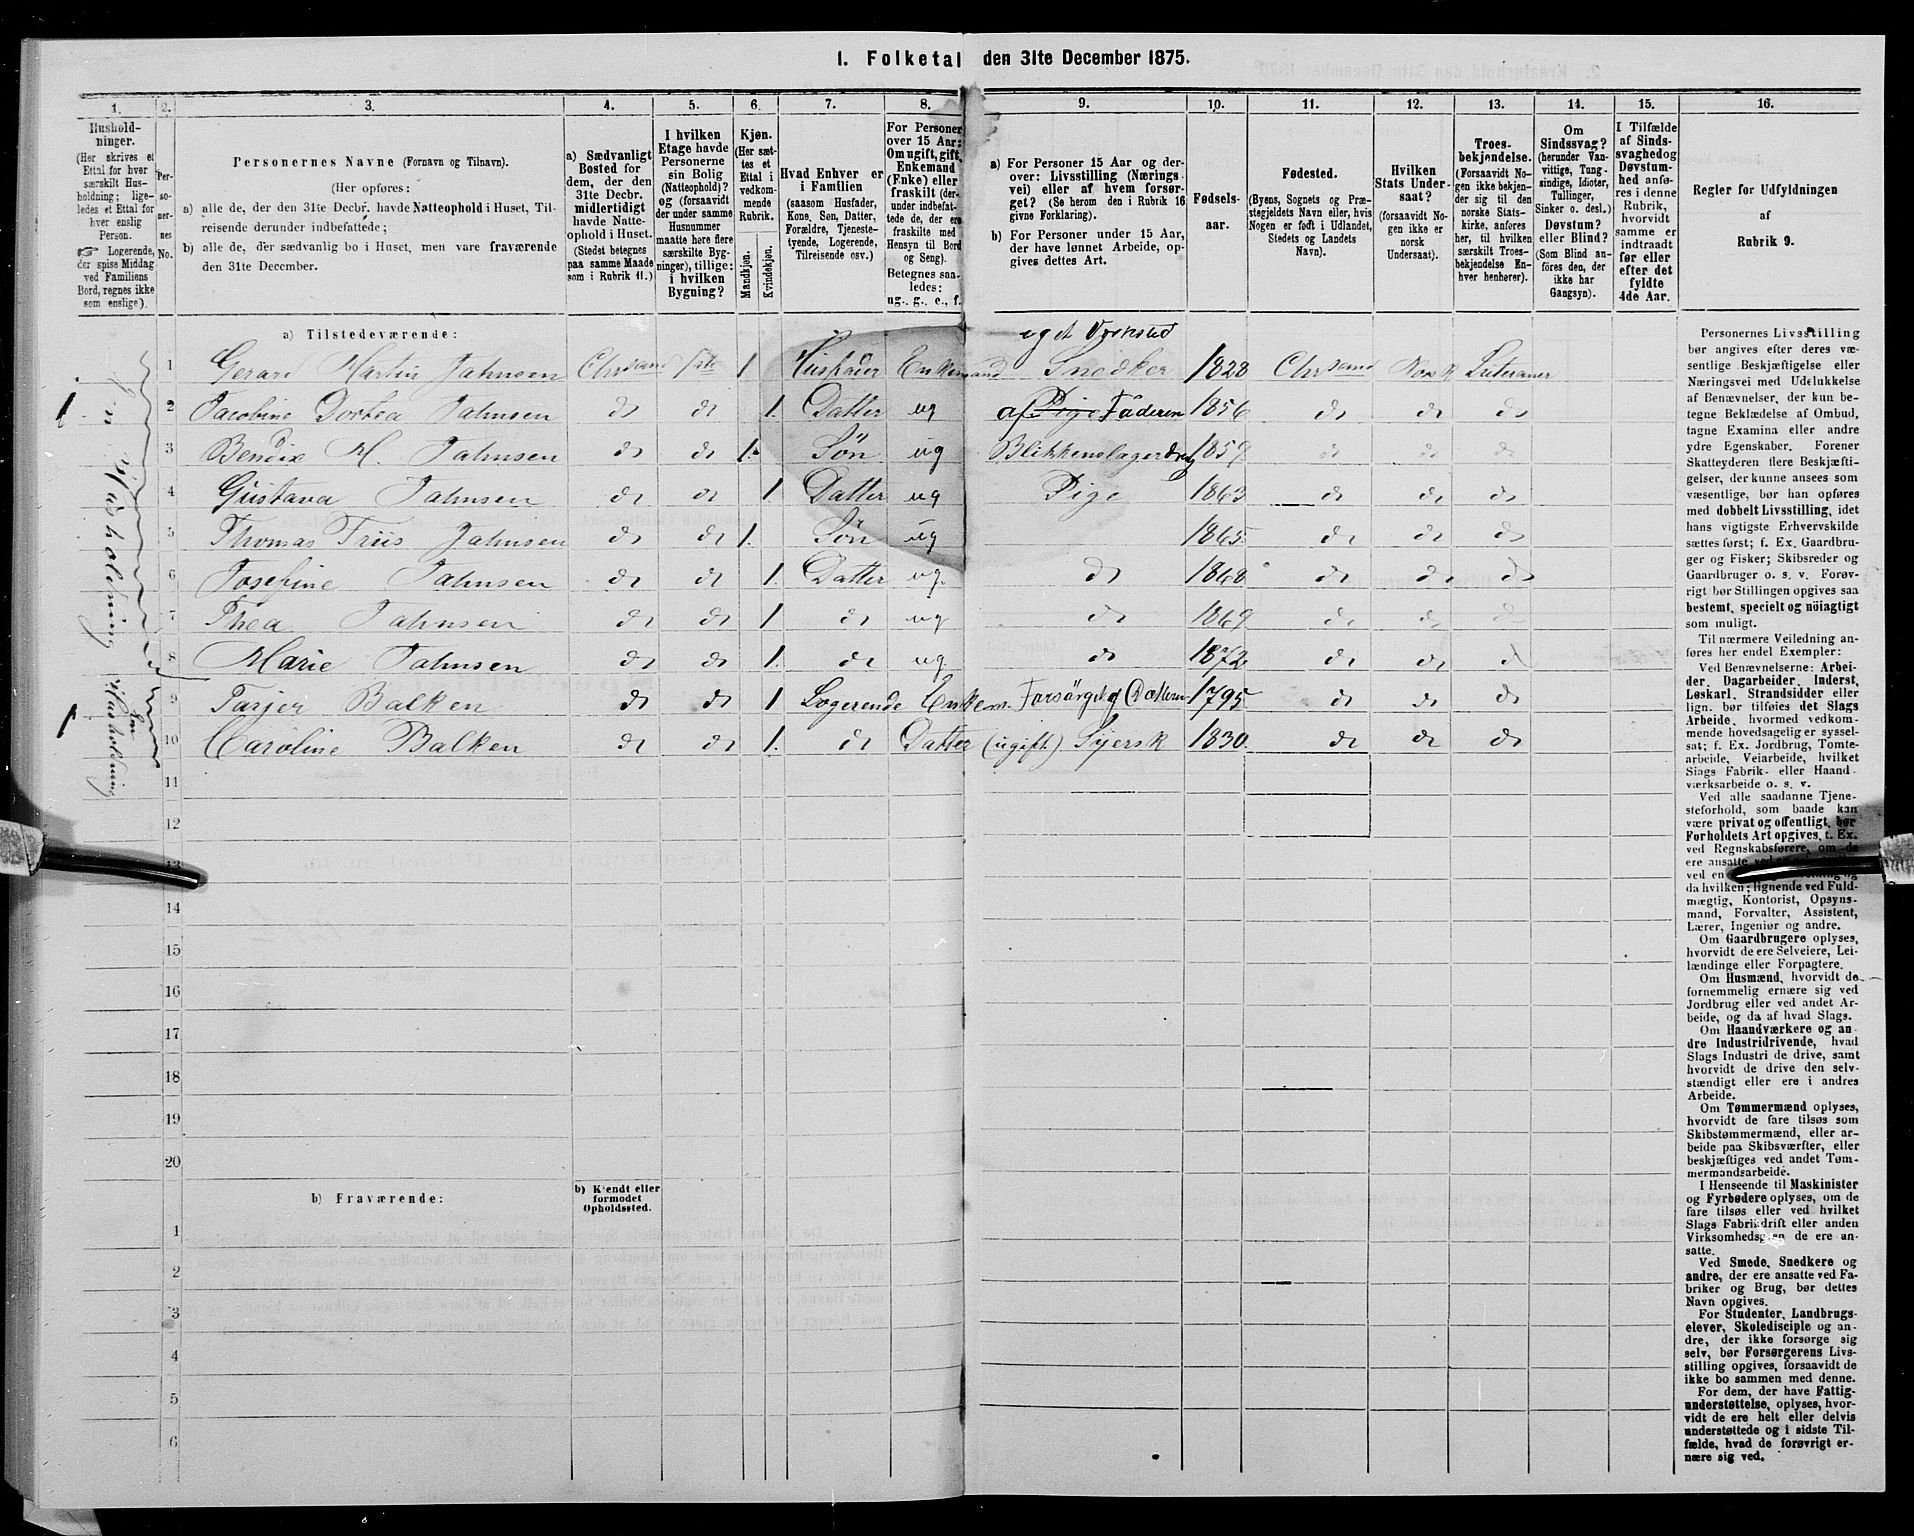 1. Folketal den 31te December 1875.
1.
2.
3.
4.
5.
6.
7.
8.
9.
10.
11.
12.
13.
14.
15.
16.
Hushold-
ninger.
(Her skrives et
Ettal for hver
særskilt Hus-
holdning; lige-
ledes et Ettal for
hver enslig
Person.
☞ Logerende,
der spise Middag
ved Familiens
Bord, regnes ikke
som enslige).
Per-
so-
ner-
nes
No.
Personernes Navne (Fornavn og Tilnavn).
(Her opføres:
a) alle de, der den 31te Decbr. havde Natteophold i Huset, Til-
reisende derunder indbefattede;
b) alle de, der sædvanlig bo i Huset, men vare fraværende
den 31te December.
a) Sædvanligt
Bosted for
dem, der den
31te Decbr.
midlertidigt
havde Natte-
ophold i Huset.
(Stedet betegnes
paa samme Maade
som i Rubrik 11.)
I hvilken
Etage havde
Personerne
sin Bolig
(Natteophold)?
og (forsaavidt
der under samme
Husnummer
maatte høre flere
særskilte Byg-
ninger), tillige:
i hvilken
Bygning?
Kjøn.
(Her sæt-
tes et
Ettal i
vedkom-
mende
Rubrik.
Mandkjøn.
Kvindekjøn.
Hvad Enhver er
i Familien
(saasom Husfader,
Kone, Søn, Datter,
Forældre, Tjeneste-
tyende, Logerende,
Tilreisende osv.)
For Personer
over 15 Aar:
Om ugift, gift,
Enkemand
(Enke) eller
fraskilt (der-
under indbefat-
tede de, der ere
fraskilte med
Hensyn til Bord
og Seng).
Betegnes saa-
ledes:
ug., g., e., f.
a) For Personer 15 Aar og der-
over: Livsstilling (Nærings-
vei) eller af hvem forsør-
get? (Se herom den i Rubrik 16
givne Forklaring).
b) For Personer under 15 Aar,
der have lønnet Arbeide, op-
gives dettes Art.
Fødsels-
aar.
Fødested.
(Byens, Sognets og Præ-
stegjeldets Navn eller, hvis
Nogen er født i Udlandet,
Stedets og Landets
Navn).
Hvilken
Stats Under-
saat?
(forsaavidt No-
gen ikke er
norsk
Undersaat).
Troes-
bekjendelse.
(Forsaavidt No-
gen ikke bekjen-
der sig til den
norske Stats-
kirke, anføres
her, til hvilken
særskilt Troes-
bekjendelse En-
hver henhører).
Om
Sindssvag?
(herunder Van-
vittige, Tung-
sindige, Idioter,
Tullinger,
Sinker o. desl.)
Døvstum?
eller Blind?
(Som Blind an-
føres den, der
ikke har
Gangsyn).
I Tilfælde
af Sinds-
svaghed og
Døvstum-
hed anfø-
res i denne
Rubrik,
hvorvidt
samme er
indtraadt
før eller
efter det
fyldte
4de Aar.
Regler for Udfyldningen
af
Rubrik 9.
a) Tilstedeværende:
eget Verksted
1 Gerard Martin Jahnsen Chrsand 1ste 1 Husfader Enkemand Snedker 1828 Chrsand Norsk Luteraner
2 Jacobine Dorthea Jahnsen do do 1. Datter ug af Pige Faderen 1856 do do do
3 Bendix M. Jahnsen do do 1. Søn ug Blikkenslagerdreng 1859 do do do
4 Gustava Jahnsen do do 1 Datter ug Pige 1863 do do do
5 Thomas Friis Jahnsen do do 1. Søn ug 1865 do do do
6 Josefine Jahnsen do do 1. Datter ug. do 1868 do do do
7 Thea Jahnsen do do 1. do ug do 1869 do do do
8 Marie Jahnsen do do 1. do ug. do 1872 do do do
9 Tarjer Balken do do 1 Logerende Enkem. Forsørget af Datteren 1795 do do do
10 Caroline Balken do do 1. do Datter (ugift) Syersk 1830 do do do
11
12
13
14
15
16
17
18
19
20
b) Fraværende:
b) Kjendt eller
formodet
Opholdssted.
1
2
3
4
5
6
1
1
En Husholdning
En
Husholdning
Personernes Livsstilling
bør angives efter deres væ-
sentlige Beskjæftigelse eller
Næringsvei med Udelukkelse
af Benævnelser, der kun be-
tegne Beklædelse af Ombud,
tagne Examina eller andre
ydre Egenskaber. Forener
Skatteyderen flere Beskjæfti-
gelser, der kunne ansees som
væsentlige, bør han opføres
med dobbelt Livsstilling, idet
hans vigtigste Erhvervskilde
sættes først; f. Ex. Gaardbru-
ger og Fisker; Skibsreder og
Gaardbruger o. s. v. Forøv-
rigt bør Stillingen opgives saa
bestemt, specielt og nöiagtigt
som muligt.
Til nærmere Veiledning an-
føres her endel Exempler:
Ved Benævnelserne: Arbei-
der, Dagarbeider, Inderst,
Løskarl, Strandsidder eller
lign. bør tilføies det Slags
Arbeide, hvormed vedkom-
mende hovedsagelig er syssel-
sat; f. Ex. Jordbrug, Tomte-
arbeide, Veiarbeide, hvilket
Slags Fabrik- eller Haand-
værksarbeide o. s. v.
Ved alle saadanne Tjene-
steforhold, som baade kan
være privat og offentligt, bør
Forholdets Art opgives, t. Ex.
ved Regnskabsførere, om de
ere ansatte ved
ved en
da hvilken; lignende ved Fuld-
mægtig, Kontorist, Opsyns-
mand, Forvalter, Assistent,
Lærer, Ingeniør og andre.
Om Gaardbrugere oplyses,
hvorvidt de ere Selveiere, Lei-
lændinge eller Forpagtere.
Om Husmænd, hvorvidt de
fornemmelig ernære sig ved
Jordbrug eller ved andet Ar-
beide, og da af hvad Slags.
Om Haandværkere og an-
dre Industridrivende, hvad
Slags Industri de drive, samt
hvorvidt de drive den selv-
stændigt eller ere i andres
Arbeide.
Om Tømmermænd oplyses,
hvorvidt de fare tilsøs som
Skibstømmermænd, eller ar-
beide paa Skibsværfter, eller
beskjæftiges ved andet Tøm-
mermandsarbeide.
I Henseende til Maskinister
og Fyrbødere oplyses, om de
fare tilsøs eller ved hvilket
Slags Fabrikdrift eller anden
Virksomhedsgren de ere an-
satte.
Ved Smede, Snedkere og
andre, der ere ansatte ved Fa-
briker og Brug, bør dettes
Navn opgives.
For Studenter, Landbrugs-
elever, Skoledisciple og an-
dre, der ikke forsørge sig
selv, bør Forsørgerens Livs-
stilling opgives, forsaavidt de
ikke bo sammen med denne.
For dem, der have Fattig-
understøttelse, oplyses, hvor-
vidt de ere helt eller delvis
understøttede og i sidste Til-
fælde, hvad de forøvrigt er-
nære sig ved.